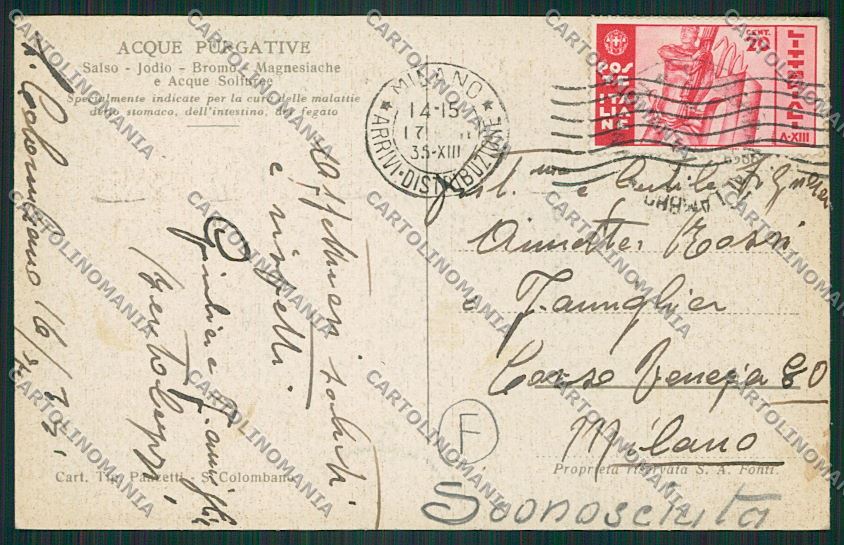 ACQUE PURGATIVE
Salso - Jodio - Bromo - Magnesiache
e Acque Solfuree
Specialmente indicate per la cura delle malattie
dello stomaco, dell'intestino, del fegato
S. Colombano 16/
Affettuosi saluti
e
Giulia e Famiglia
Cart. Tip. Panzetti - S. Colombano
MILANO
14-15
17
35-XIII
ARRIVI-DISTRIBUZIONE
POSTE
ITALIANE
CENT.
20
LITTORIALI
A·XIII
Gent.ma e Gentile
Annetta Rossi
e Famiglia
Corso Venezia 80
Milano
F
Proprietà riservata S. A. Fonti.
Sconosciuta
CARTOLINOMANIA